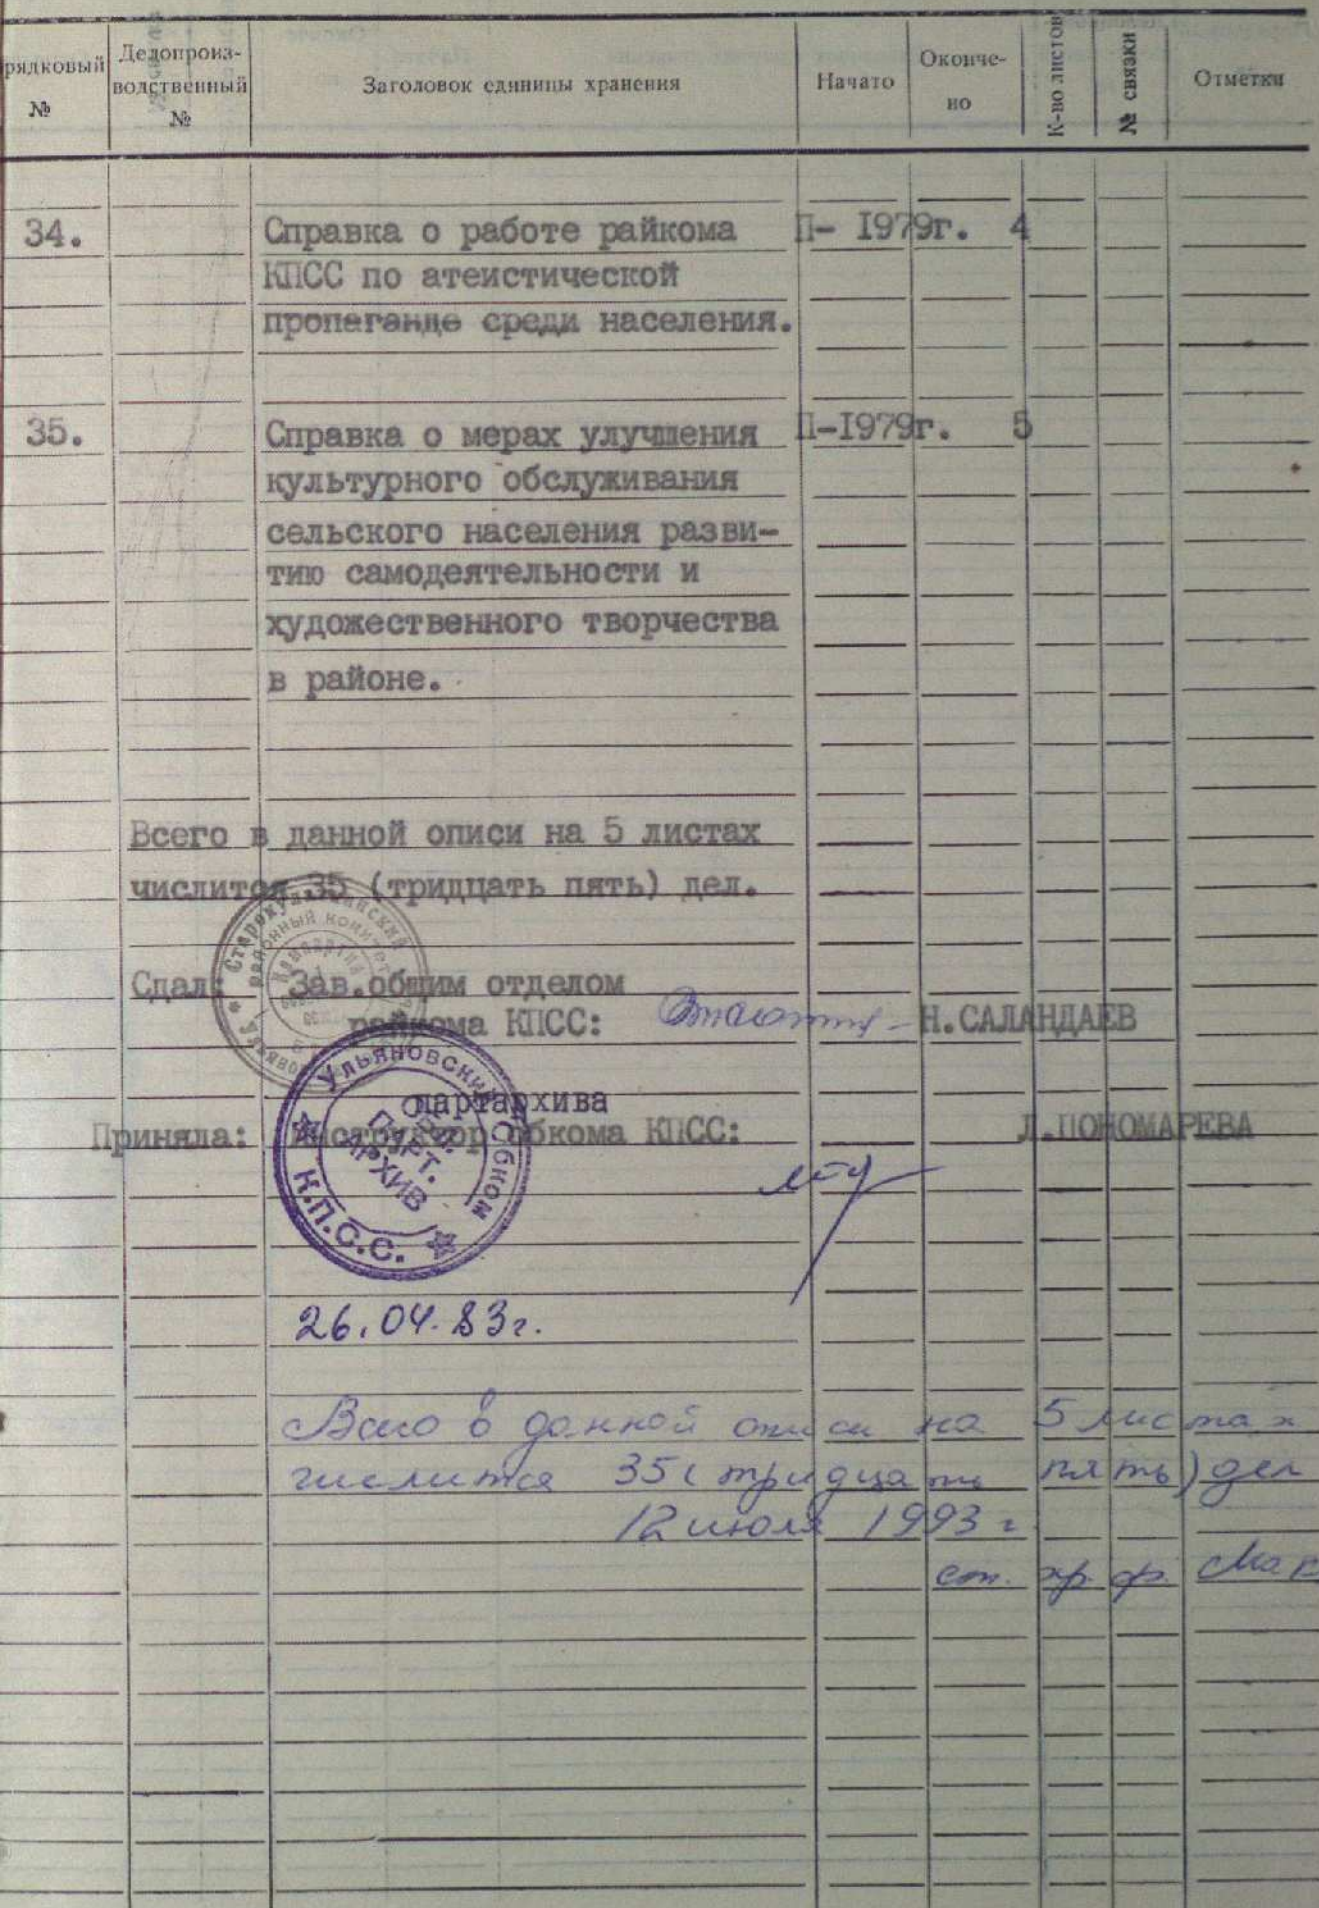 рядковый №
Делопроиз-
водственный
№
Заголовок единицы хранения
Начато
Оконче-
но
К-во листов
№ связки
Отметки
34. Справка о работе райкома П- I979г. 4
КПСС по атеистической
пропаганде среди населения.
35. Справка о мерах улучшения П-I979г. 5
культурного обслуживания
сельского населения разви-
тию самодеятельности и
художественного творчества
в районе.
Всего в данной описи на 5 листах
числится 35 (тридцать пять) дел.
Сдал: Зав.общим отделом
райкома КПСС: Н.САЛАНДАЕВ
партархива
Приняла: Инструктор обкома КПСС: Л.ПОНОМАРЕВА
Ульяновский Обком
К.П.С.С.
ПАРТ.
АРХИВ
26.04.83г.
Всего в данной описи на 5 листах
числится 35 (тридцать пять) дел
12 июля 1993 г
ст. хр. ф.